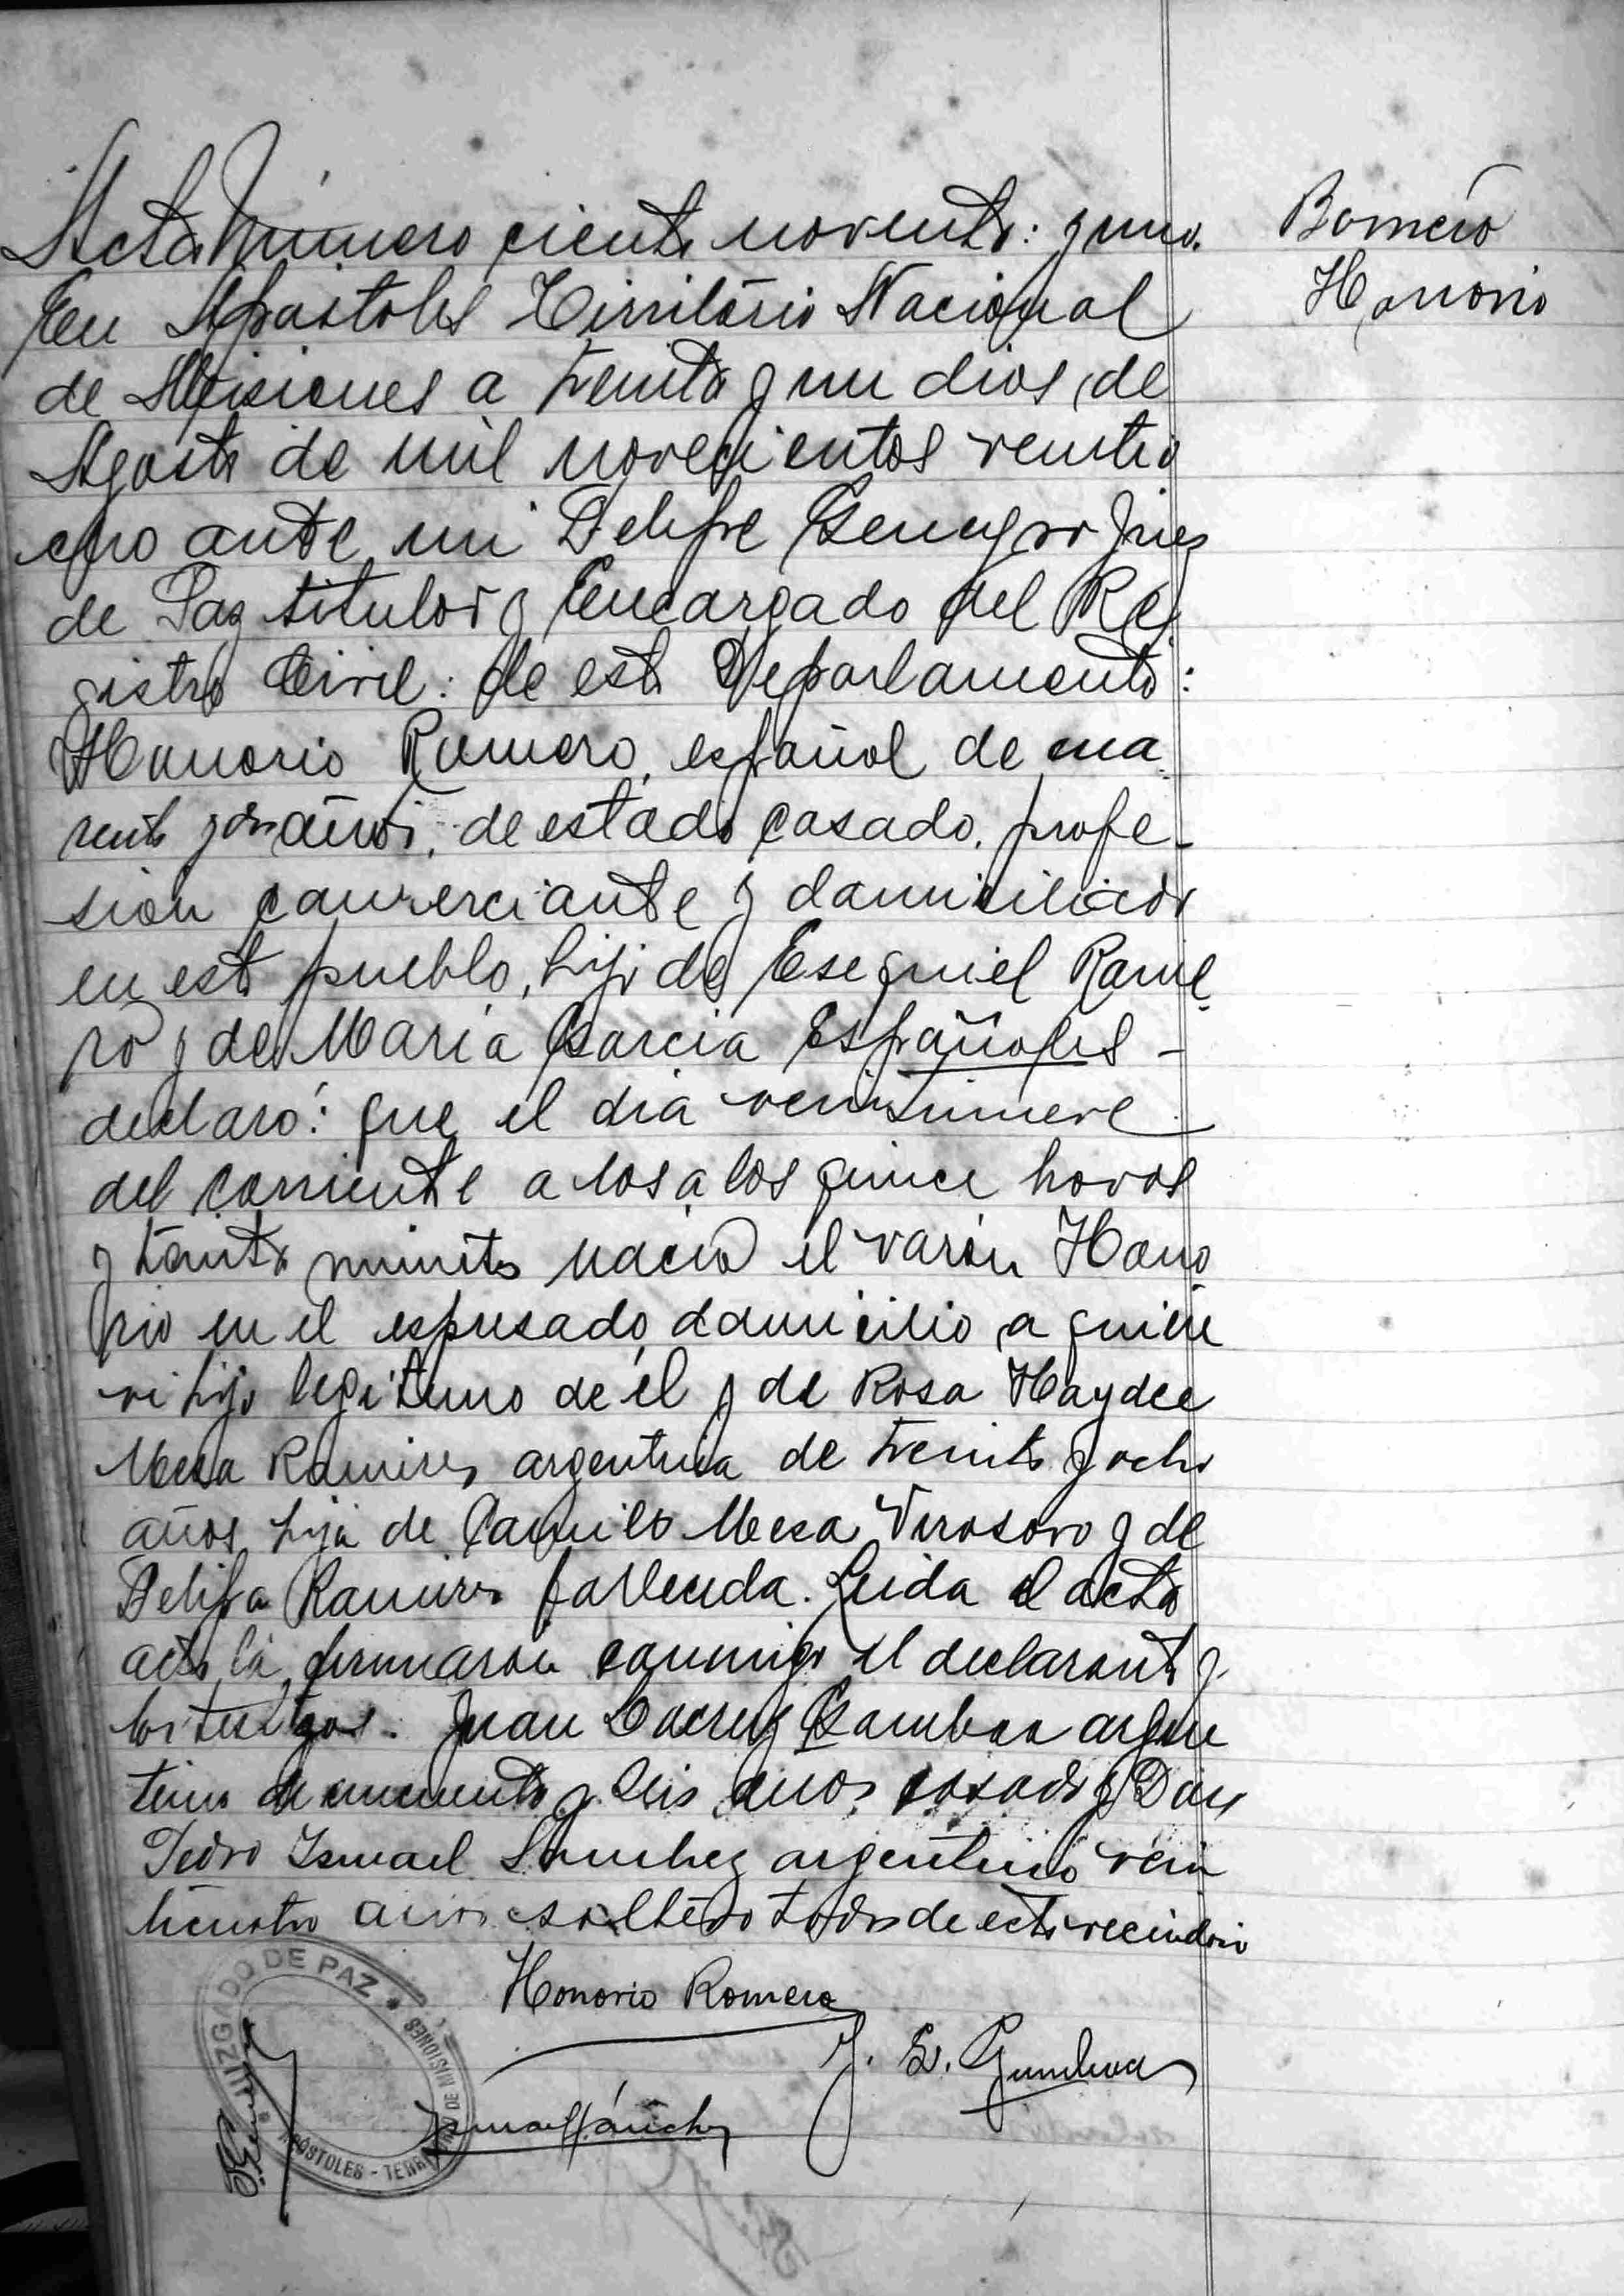 Acta Número ciento noventa: y uno.
Romero
Honorio
En Apostoles Territorio Nacional
de Misiones a treinta y un dias de
Agosto de mil novecientos veintio
cho ante mi Felipe Juez
de Paz titular y Encargado del Re
gistro Civil: de este Departamento:
Honorio Romero, español de cua
renta y dos años, de estado casado, profe-
sion comerciante y domiciliado
en este pueblo, hijo de Esequiel Rome
ro y de Maria Garcia Españoles -
declaró: que el dia veintinueve
del corriente a las a las quince horas
y minutos nació el varón Hono
rio en el espresado domicilio a quien
vi hijo legitimo de él y de Rosa Haydee
Meza Ramires argentina de treinta y ocho
años hija de Camilo Meza Virasoro y de
Felipa Ramires fallecida. Leida el acta
acta la firmaron conmigo el declarante y
los testigos. Juan Gamboa argen
tino de cincuenta y seis años casado y Don
Pedro Ismael Sanchez argentino vein
ticuatro años soltero todos de este vecindario
Honorio Romero
J. L. Gamboa
Ismael Sánchez
JUZGADO DE PAZ
APÓSTOLES - TERRITORIO DE MISIONES